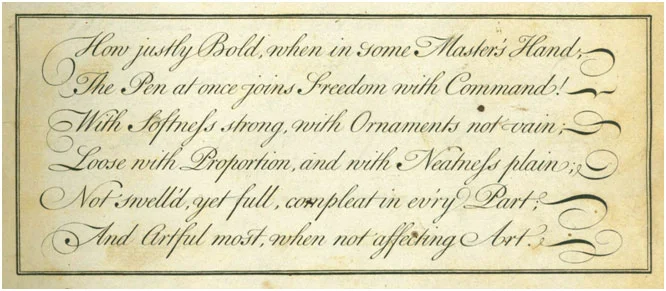 How justly Bold, when in some Master's Hand,
The Pen at once joins Freedom with Command!
With Softneſs strong, with Ornaments not vain;
Loose with Proportion, and with Neatneſs plain;
Not swell'd, yet full, compleat in ev'ry Part,
And Artful most, when not affecting Art.